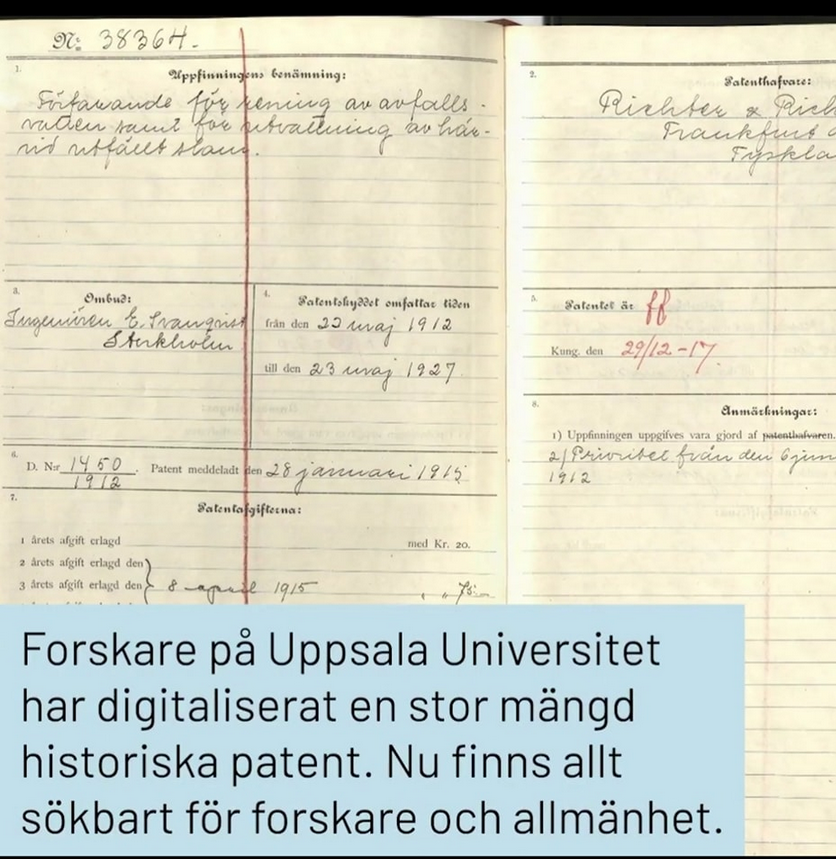 Nr: 38364.
1.
Uppfinningens benämning:
Förfarande för rening av avfalls-
vatten samt för utvattning av här-
vid utfällt slam.
2.
Patenthafvare:
Richter & Rich
Frankfurt a
Tyskla
3.
Ombud:
Ingeniören E. Svanqvist
Stockholm
4.
Patentskyddet omfattar tiden
från den 23 maj 1912
till den 23 maj 1927
5.
Patentet är ff
Kung. den 29/12-17.
6.
D. N:r 1450
1912
Patent meddeladt den 28 januari 1915
7.
Patentafgifterna:
1 årets afgift erlagd med Kr. 20.
2 årets afgift erlagd den
3 årets afgift erlagd den 8 april 1915 " " 75:
8.
Anmärkningar:
1) Uppfinningen uppgifves vara gjord af patenthafvaren.
2) Prioritet från den 6 juni
1912
Forskare på Uppsala Universitet
har digitaliserat en stor mängd
historiska patent. Nu finns allt
sökbart för forskare och allmänhet.